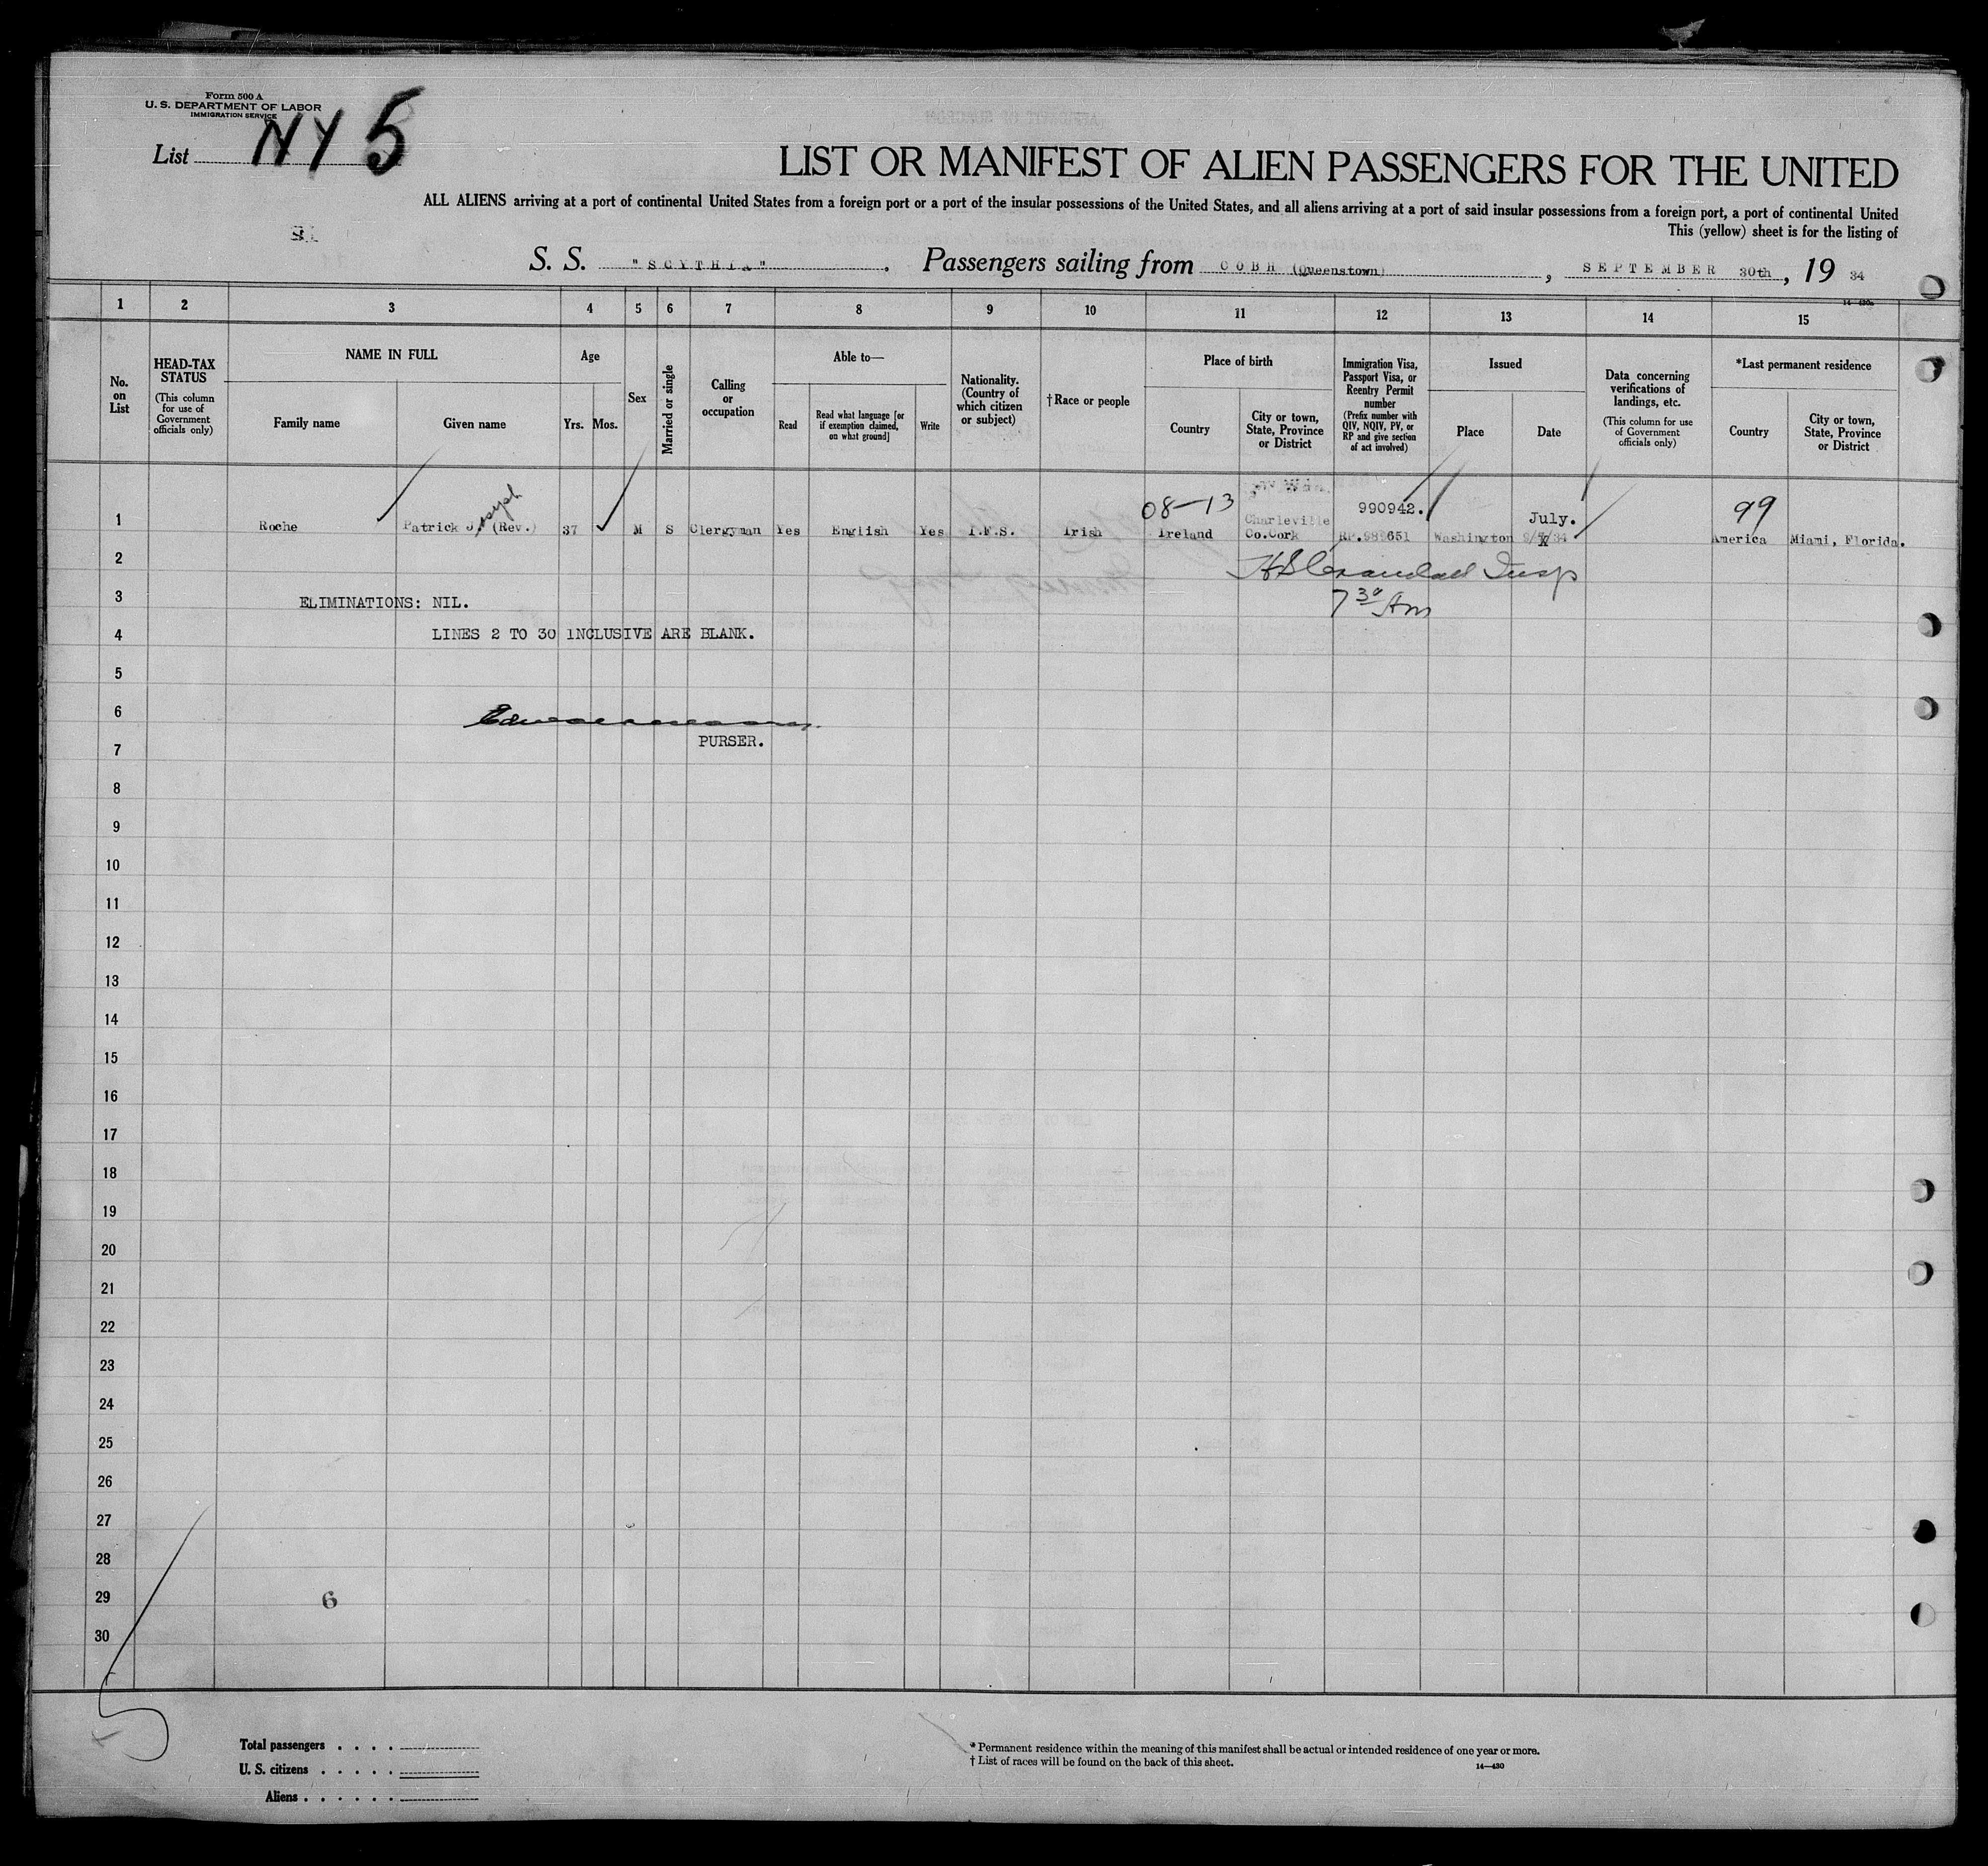 Form 500 A
U. S. DEPARTMENT OF LABOR
IMMIGRATION SERVICE
List NY 5
LIST OR MANIFEST OF ALIEN PASSENGERS FOR THE UNITED
ALL ALIENS arriving at a port of continental United States from a foreign port or a port of the insular possessions of the United States, and all aliens arriving at a port of said insular possessions from a foreign port, a port of continental United
This (yellow) sheet is for the listing of
S. S. "SCYTHIA", Passengers sailing from COBH (Queenstown), SEPTEMBER 30th, 19 34
14—430a
1 2 3 4 5 6 7 8 9 10 11 12 13 14 15
No. on List
HEAD-TAX STATUS
(This column for use of Government officials only)
NAME IN FULL
Family name
Given name
Age
Yrs. Mos.
Sex
Married or single
Calling or occupation
Able to—
Read
Read what language [or if exemption claimed, on what ground]
Write
Nationality. (Country of which citizen or subject)
†Race or people
Place of birth
Country
City or town, State, Province or District
Immigration Visa, Passport Visa, or Reentry Permit number
(Prefix number with QIV, NQIV, PV, or RP and give section of act involved)
Issued
Place
Date
Data concerning verifications of landings, etc.
(This column for use of Government officials only)
*Last permanent residence
Country
City or town, State, Province or District
08-13 990942. July. 99
1 Roche Patrick J. Joseph (Rev.) 37 M S Clergyman Yes English Yes I.F.S. Irish Ireland Charleville Co.Cork RP. 651 Washington America Miami, Florida.
2
Insp
3 ELIMINATIONS: NIL. 7 30 Am
4 LINES 2 TO 30 INCLUSIVE ARE BLANK.
5
6
7 PURSER.
8
9
10
11
12
13
14
15
16
17
18
19
20
21
22
23
24
25
26
27
28
29 6
30
5
Total passengers . . . .
U. S. citizens . . . . .
Aliens . . . . . .
* Permanent residence within the meaning of this manifest shall be actual or intended residence of one year or more.
† List of races will be found on the back of this sheet.
14—430